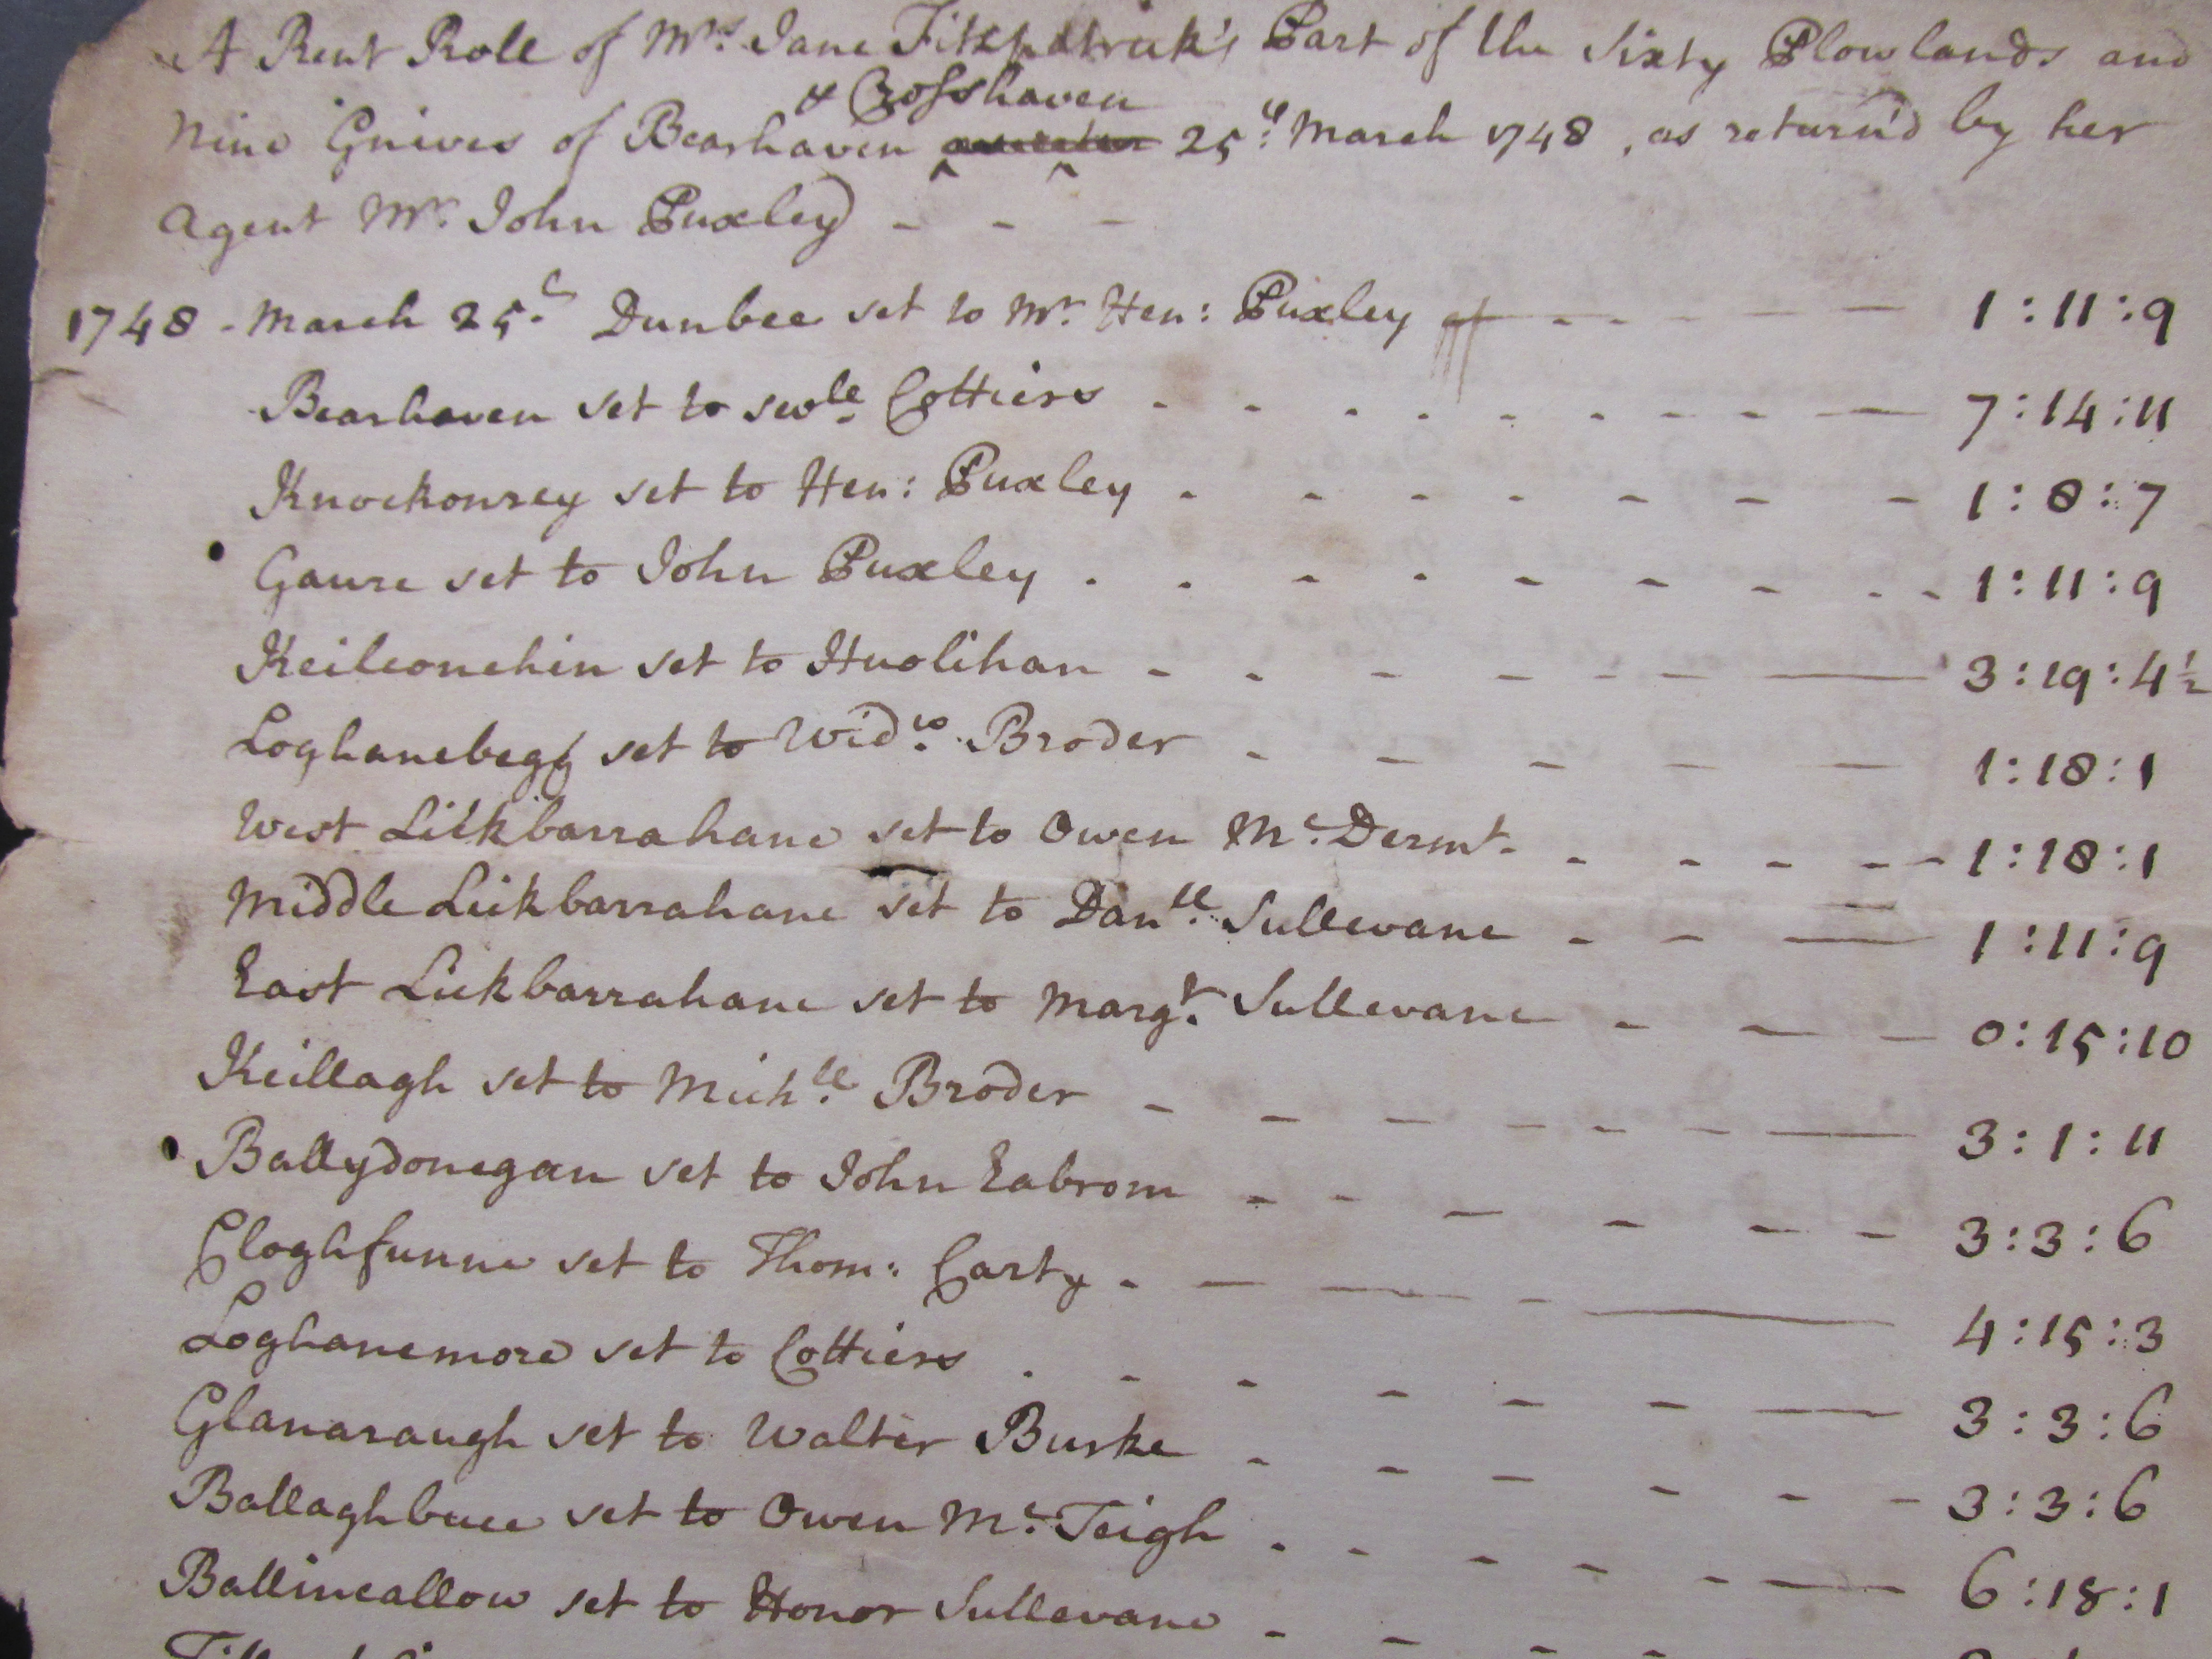 A Rent Roll of Mrs. Jane Fitzpatrick's Part of the Sixty Plowlands and
& Crosshaven
Nine Gnives of Bearhaven 25th March 1748, as return'd by her
Agent Mr. John Puxley - - -
1748 - March 25th Dunbee set to Mr. Hen: Puxley - - - - - 1:11:9
Bearhaven set to sevle. Cottiers - - - - - - - - 7:14:11
Knockonrey set to Hen: Puxley - - - - - - - 1:8:7
Gaure set to John Puxley - - - - - - - - - 1:11:9
Keileonehin set to Huolihan - - - - - - - 3:19:4½
Loghanebegg set to Widw. Broder - - - - - 1:18:1
West Lickbarrahane set to Owen Mc. Dermt. - - - - - 1:18:1
Middle Lickbarrahane set to Danll. Sullevane - - - 1:11:9
East Lickbarrahane set to Margt. Sullevane - - - 0:15:10
Keillagh set to Michll. Broder - - - - - - - 3:1:11
Ballydonegan set to John Eabrom - - - - - - 3:3:6
Cloghfunne set to Thom: Carty - - - - - 4:15:3
Loghanemore set to Cottiers - - - - - - - 3:3:6
Glanaraugh set to Walter Burke - - - - - - 3:3:6
Ballaghbuee set to Owen Mc. Teigh - - - - - - 6:18:1
Ballincallow set to Honor Sullevane - - - -